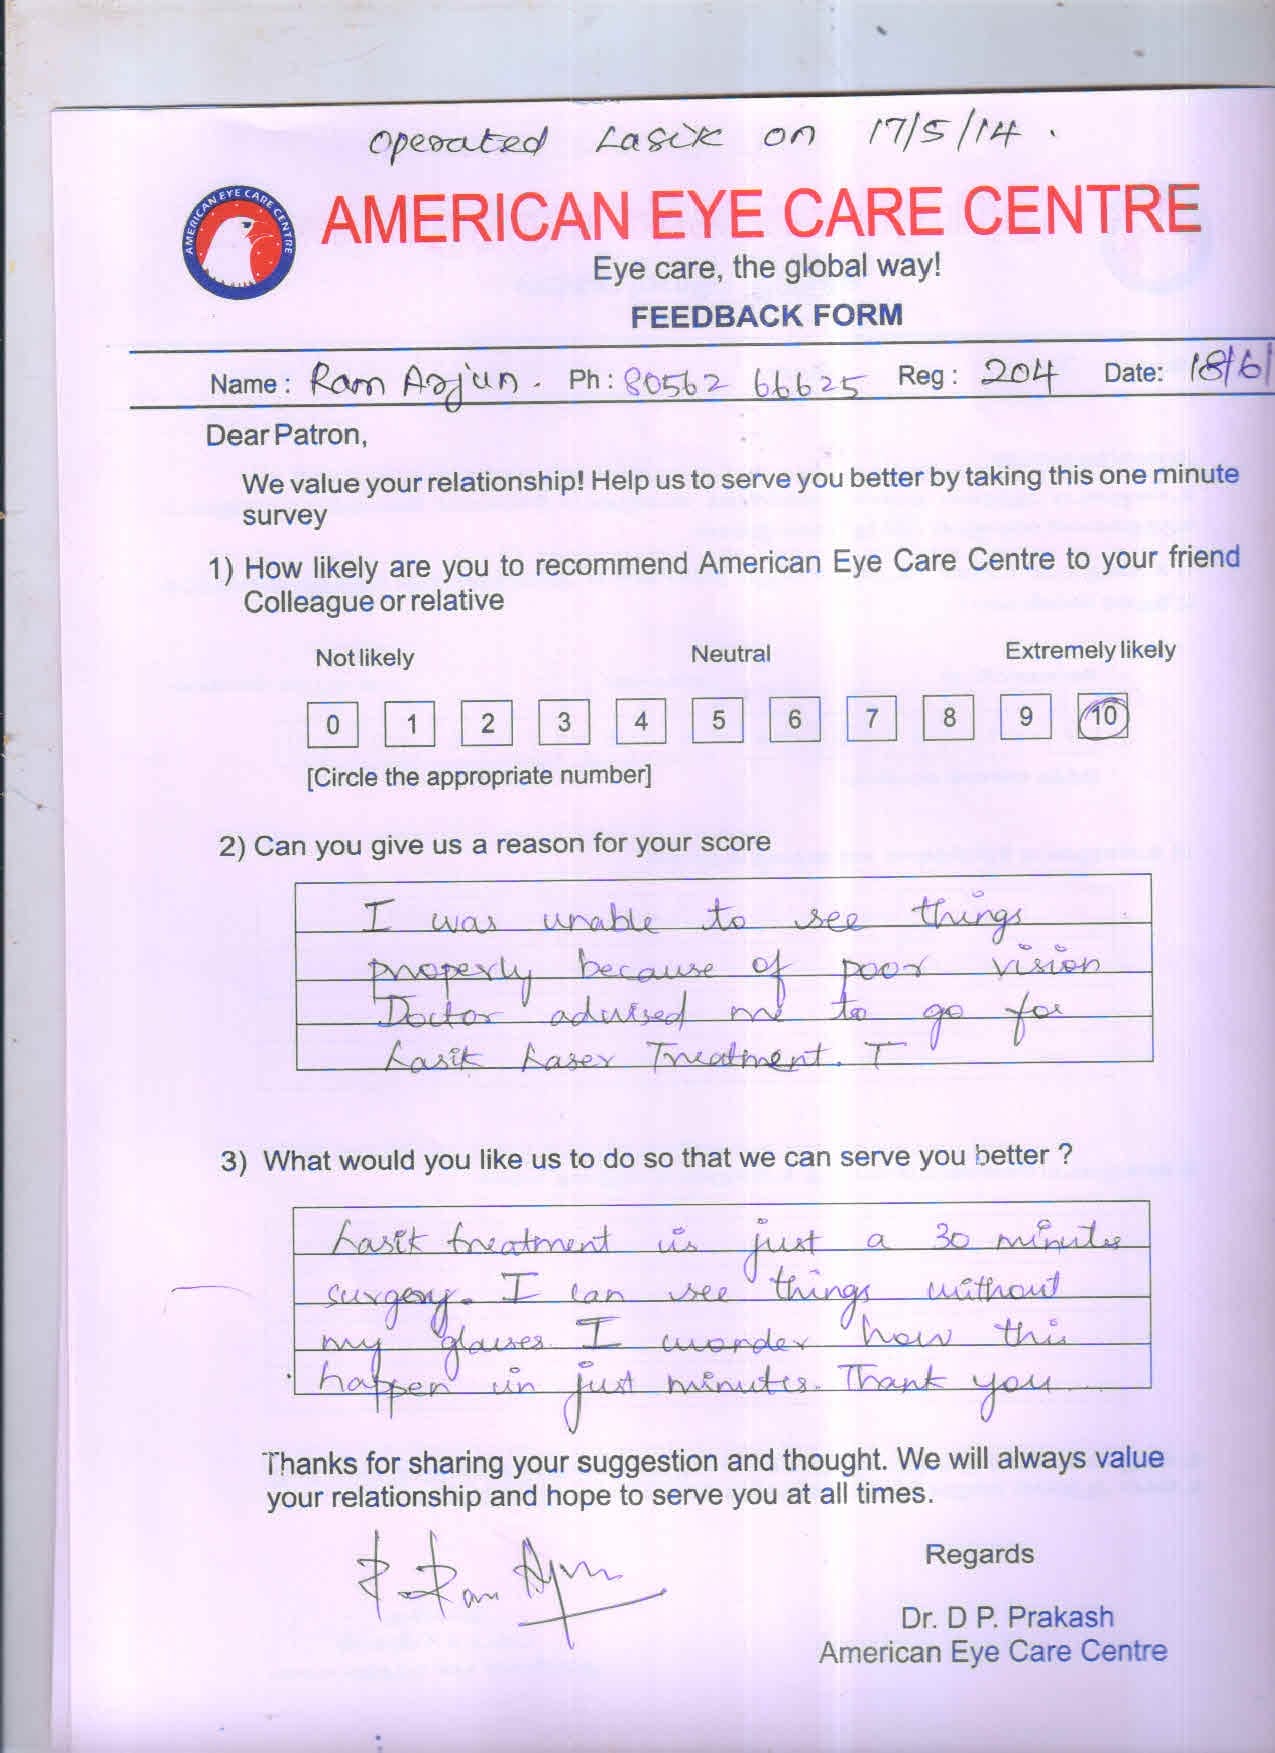 Operated Lasik on 17/5/14.
AMERICAN EYE CARE CENTRE
AMERICAN EYE CARE CENTRE
Eye care, the global way!
FEEDBACK FORM
Name : Ram Arjun. Ph : 80562 66625 Reg : 204 Date: 18/6/
Dear Patron,
We value your relationship! Help us to serve you better by taking this one minute
survey
1) How likely are you to recommend American Eye Care Centre to your friend
Colleague or relative
Not likely Neutral Extremely likely
0 1 2 3 4 5 6 7 8 9 10
[Circle the appropriate number]
2) Can you give us a reason for your score
I was unable to see things
properly because of poor vision
Doctor advised me to go for
Lasik Laser Treatment. I
3) What would you like us to do so that we can serve you better ?
Lasik treatment is just a 30 minutes
surgery. I can see things without
my glasses. I wonder how this
happen in just minutes. Thank you
Thanks for sharing your suggestion and thought. We will always value
your relationship and hope to serve you at all times.
Regards
Ram Arjun
Dr. D P. Prakash
American Eye Care Centre